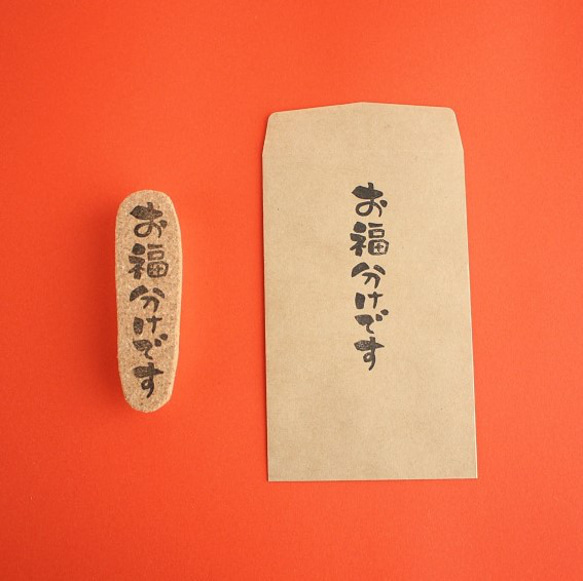 お福分けです
お福分けです